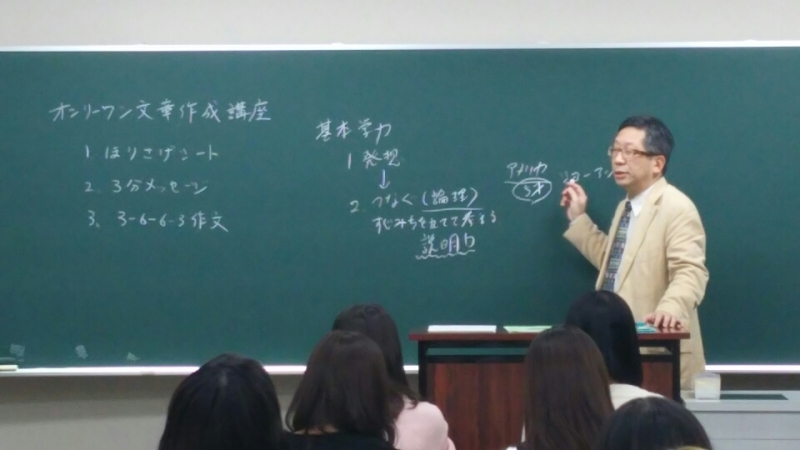 オンリーワン文章作成講座
1. ほりさげシート
2. 3分メッセージ
3. 3-6-6-3作文
基本学力
1 発想
↓
2. つなぐ(論理)
すじみちを立てて考える
説明力
アメリカ
5才
ショーアン